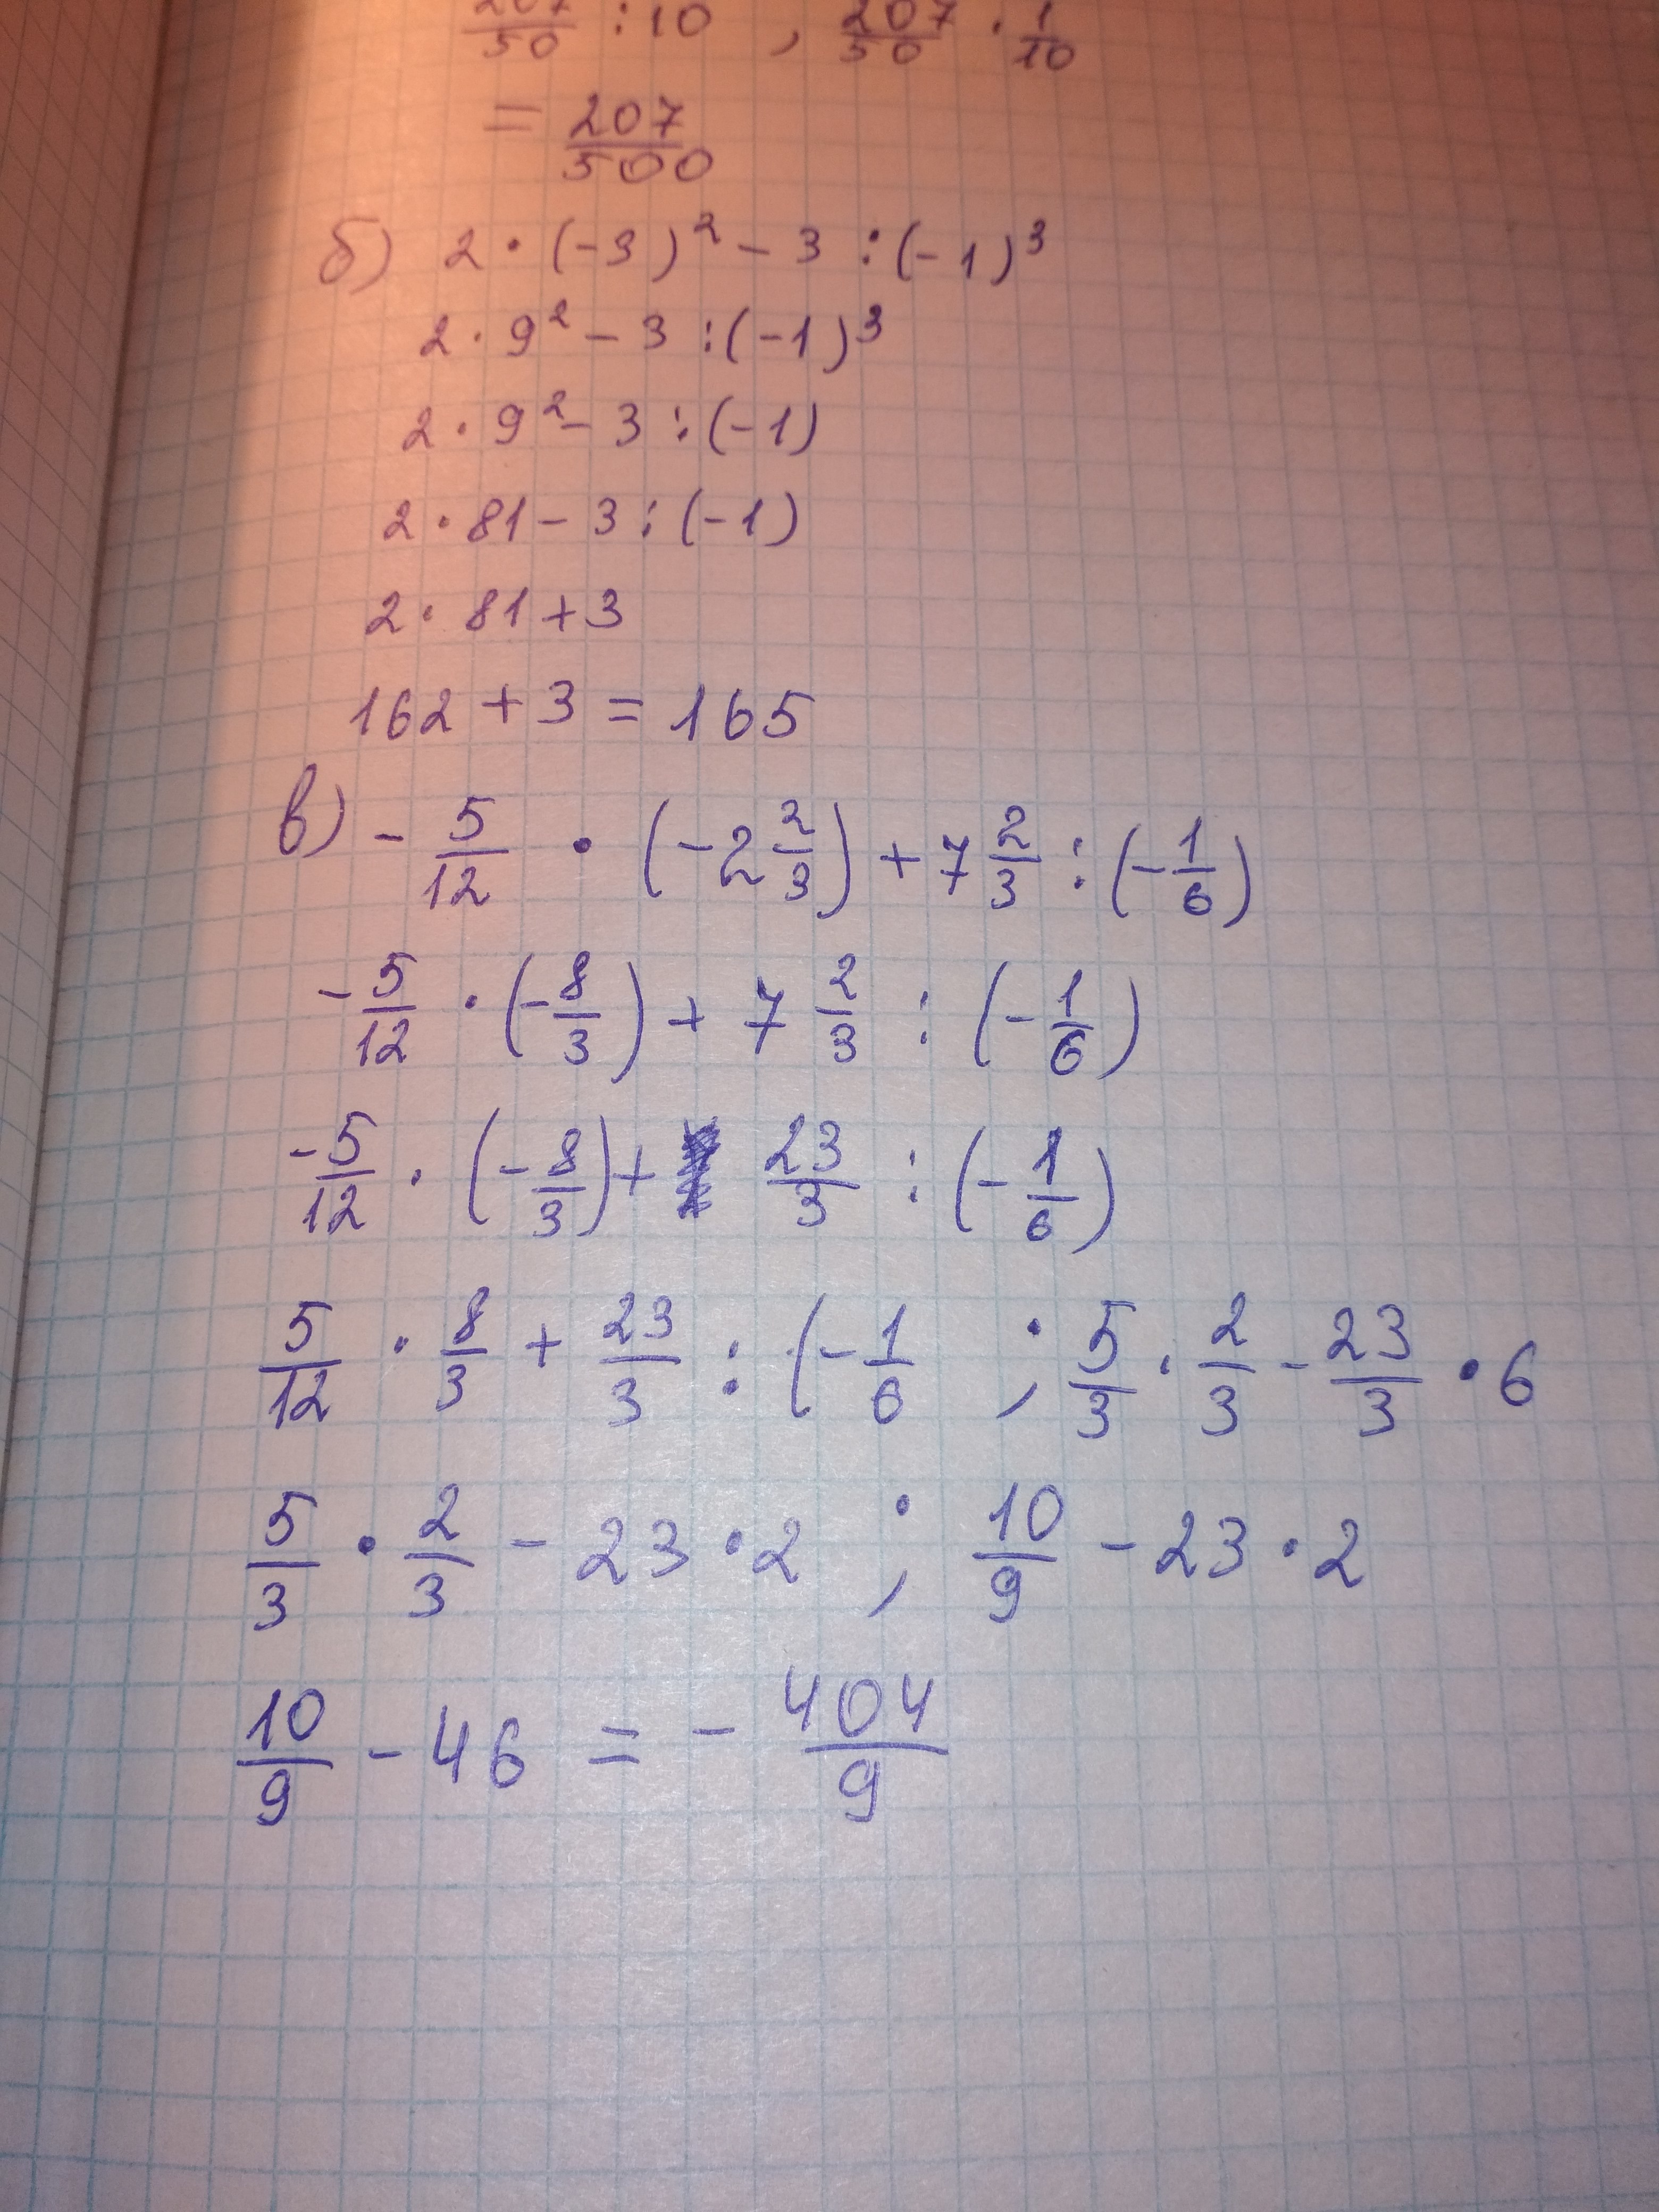 207/50 : 10 , 207/50 · 1/10
= 207/500
б) 2 · (-3)² - 3 : (-1)³
2 · 9² - 3 : (-1)³
2 · 9² - 3 : (-1)
2 · 81 - 3 : (-1)
2 · 81 + 3
162 + 3 = 165
в) - 5/12 · (-2 2/3) + 7 2/3 : (- 1/6)
- 5/12 · (- 8/3) + 7 2/3 : (- 1/6)
- 5/12 · (- 8/3) + 23/3 : (- 1/6)
5/12 · 8/3 + 23/3 : (- 1/6 ; 5/3 · 2/3 - 23/3 · 6
5/3 · 2/3 - 23 · 2 ; 10/9 - 23 · 2
10/9 - 46 = - 404/9